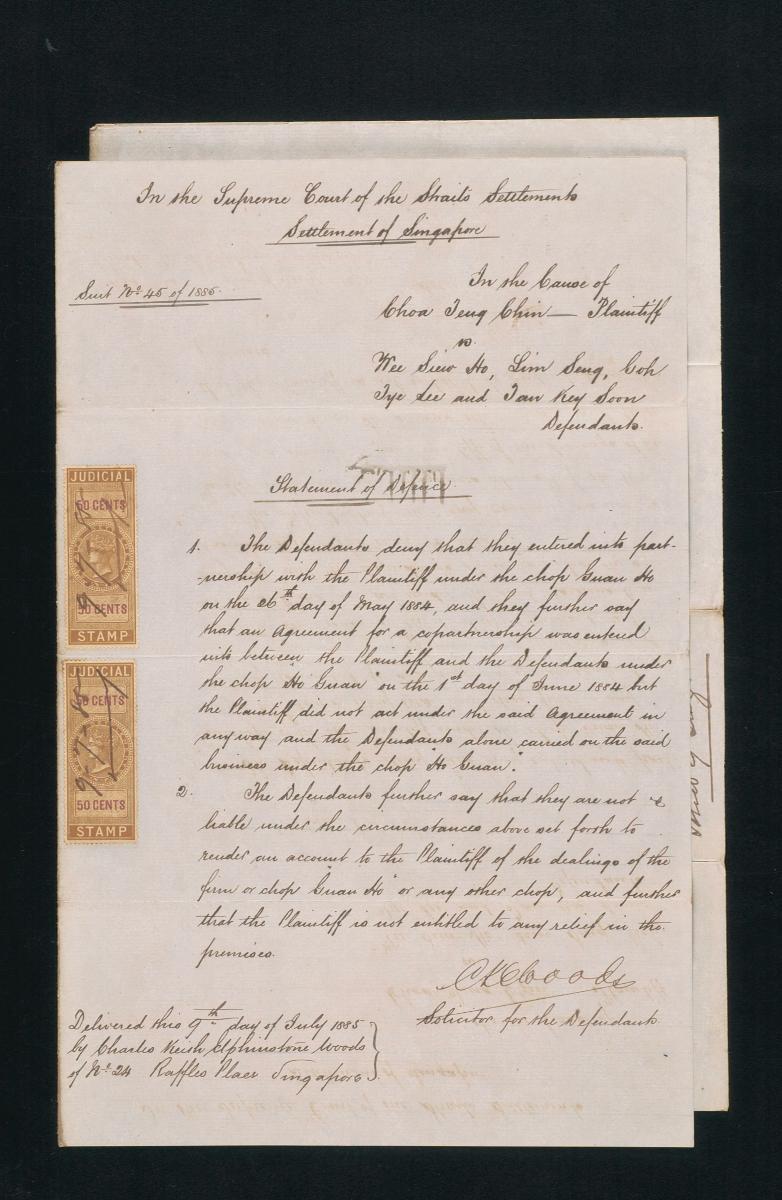 In the Supreme Court of the Straits Settlements
Settlement of Singapore
Suit No. 45 of 1885.
In the Cause of
Choa Teng Chin — Plaintiff
vs.
Wee Siew Ho, Lim Seng, Goh
Tye Lee and Tan Key Soon
Defendants.
Statement of Defence.
1. The Defendants deny that they entered into part-
-nership with the Plaintiff under the chop Guan Ho
on the 26th day of May 1884, and they further say
that an Agreement for a copartnership was entered
into between the Plaintiff and the Defendants under
the chop "Ho Guan" on the 1st day of June 1884 but
the Plaintiff did not act under the said Agreement in
any way and the Defendants alone carried on the said
business under the chop "Ho Guan".
2. The Defendants further say that they are not
liable under the circumstances above set forth to
render an account to the Plaintiff of the dealings of the
firm or chop "Guan Ho" or any other chop, and further
that the Plaintiff is not entitled to any relief in the
premises.
CKEWoods
Solicitor for the Defendants
Delivered this 9th day of July 1885
by Charles Keith Elphinstone Woods
of No. 24 Raffles Place Singapore
JUDICIAL
50 CENTS
9-7-85
50 CENTS
STAMP
JUDICIAL
50 CENTS
9-7-85
50 CENTS
STAMP